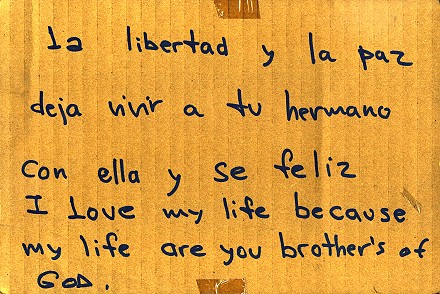 La libertad y la paz
deja vivir a tu hermano
con ella y se feliz
I Love my life because
my life are you brother's of
GOD.